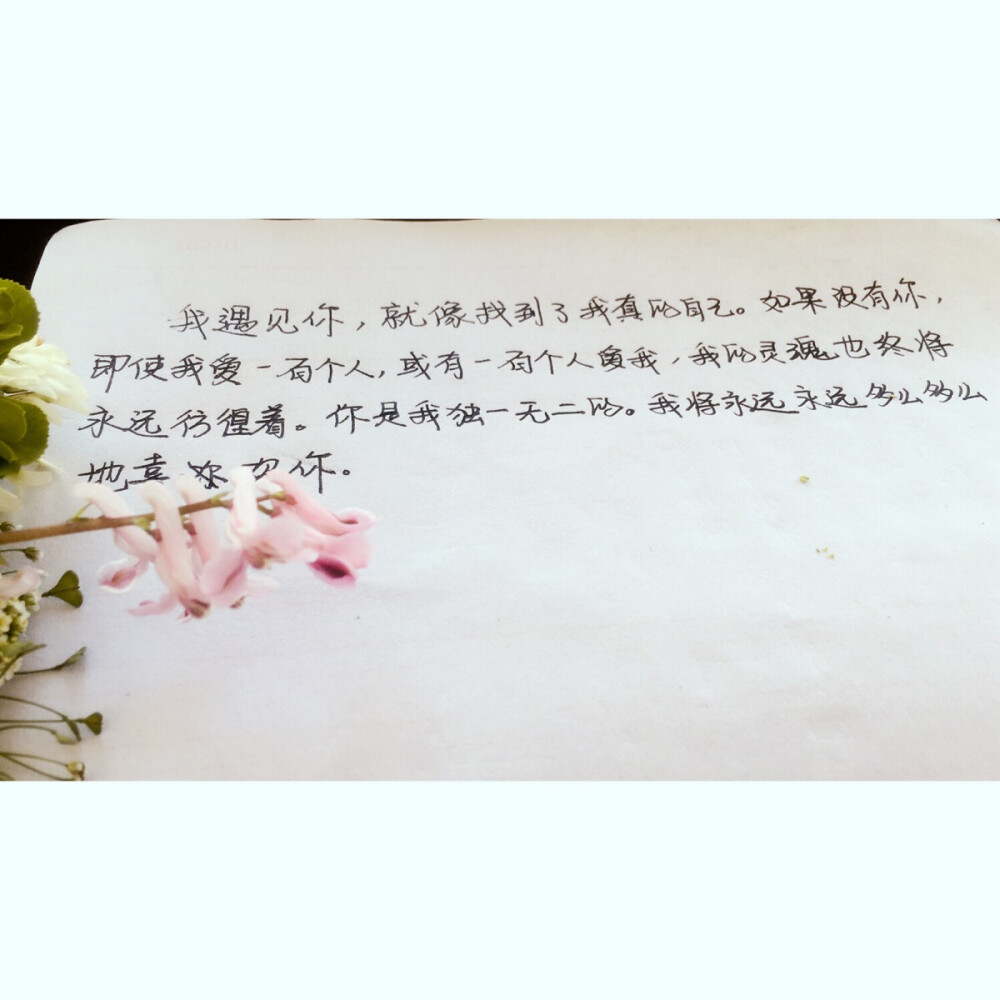 我遇见你，就像找到了我真的自己。如果没有你，
即使我爱一百个人，或有一百个人爱我，我的灵魂也终将
永远彷徨着。你是我独一无二的。我将永远永远多么多么
地喜欢你。